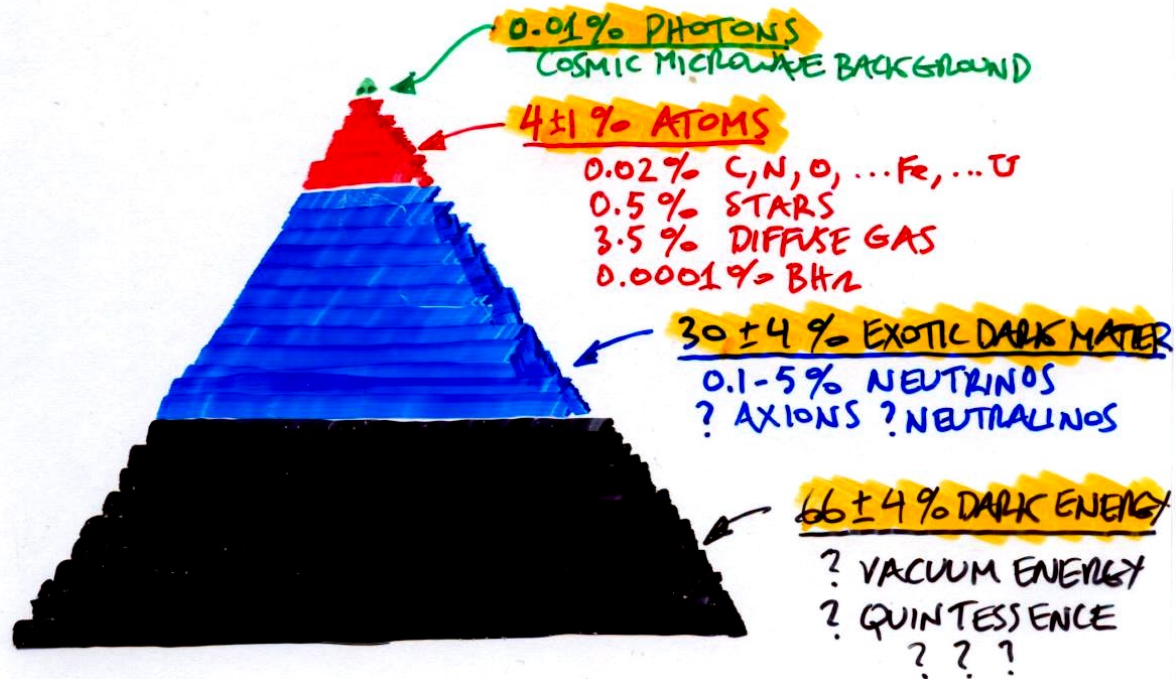 0.01% PHOTONS
COSMIC MICROWAVE BACKGROUND
4±1% ATOMS
0.02% C,N,O,...Fe,...U
0.5% STARS
3.5% DIFFUSE GAS
0.0001% BHs
30±4% EXOTIC DARK MATTER
0.1-5% NEUTRINOS
? AXIONS ? NEUTRALINOS
66±4% DARK ENERGY
? VACUUM ENERGY
? QUINTESSENCE
? ? ?